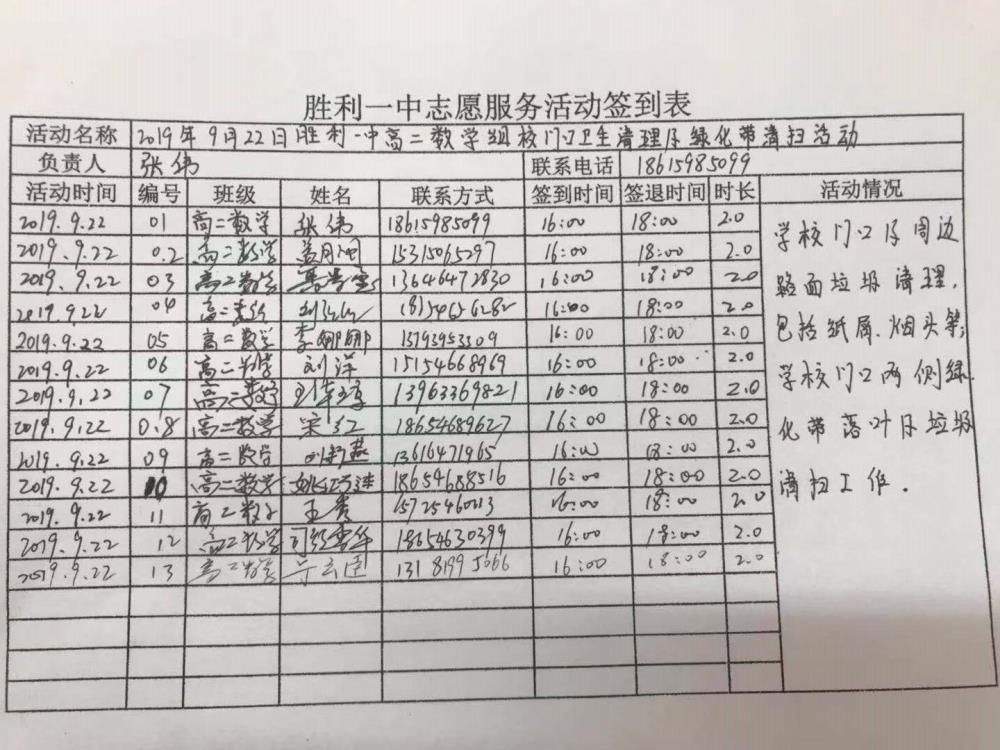 胜利一中志愿服务活动签到表
活动名称 2019年9月22日胜利一中高二数学组校门口卫生清理及绿化带清扫活动
负责人 张伟 联系电话 18615985099
活动时间 编号 班级 姓名 联系方式 签到时间 签退时间 时长 活动情况
2019.9.22 01 高二数学 张伟 18615985099 16:00 18:00 2.0
2019.9.22 0.2 高二数学 15315065297 16:00 18:00 2.0
2019.9.22 03 高二数学 13646472830 16:00 18:00 2.0
2019.9.22 04 高二数学 16:00 18:00 2.0
2019.9.22 05 高二数学 李娜娜 16:00 18:00 2.0
2019.9.22 06 高二数学 刘洋 15154668969 16:00 18:00 2.0
2019.9.22 07 高二数学 13963369821 16:00 18:00 2.0
2019.9.22 0.8 高二数学 宋红 18654689627 16:00 18:00 2.0
2019.9.22 09 高二数学 13616471965 16:00 18:00 2.0
2019.9.22 10 高二数学 18654688516 16:00 18:00 2.0
2019.9.22 11 高二数学 王秀 16:00 18:00 2.0
2019.9.22 12 高二数学 18654630399 16:00 18:00 2.0
2019.9.22 13 高二数学 16:00 18:00 2.0
学校门口及周边
路面垃圾清理,
包括纸屑、烟头等;
学校门口两侧绿
化带落叶及垃圾
清扫工作.